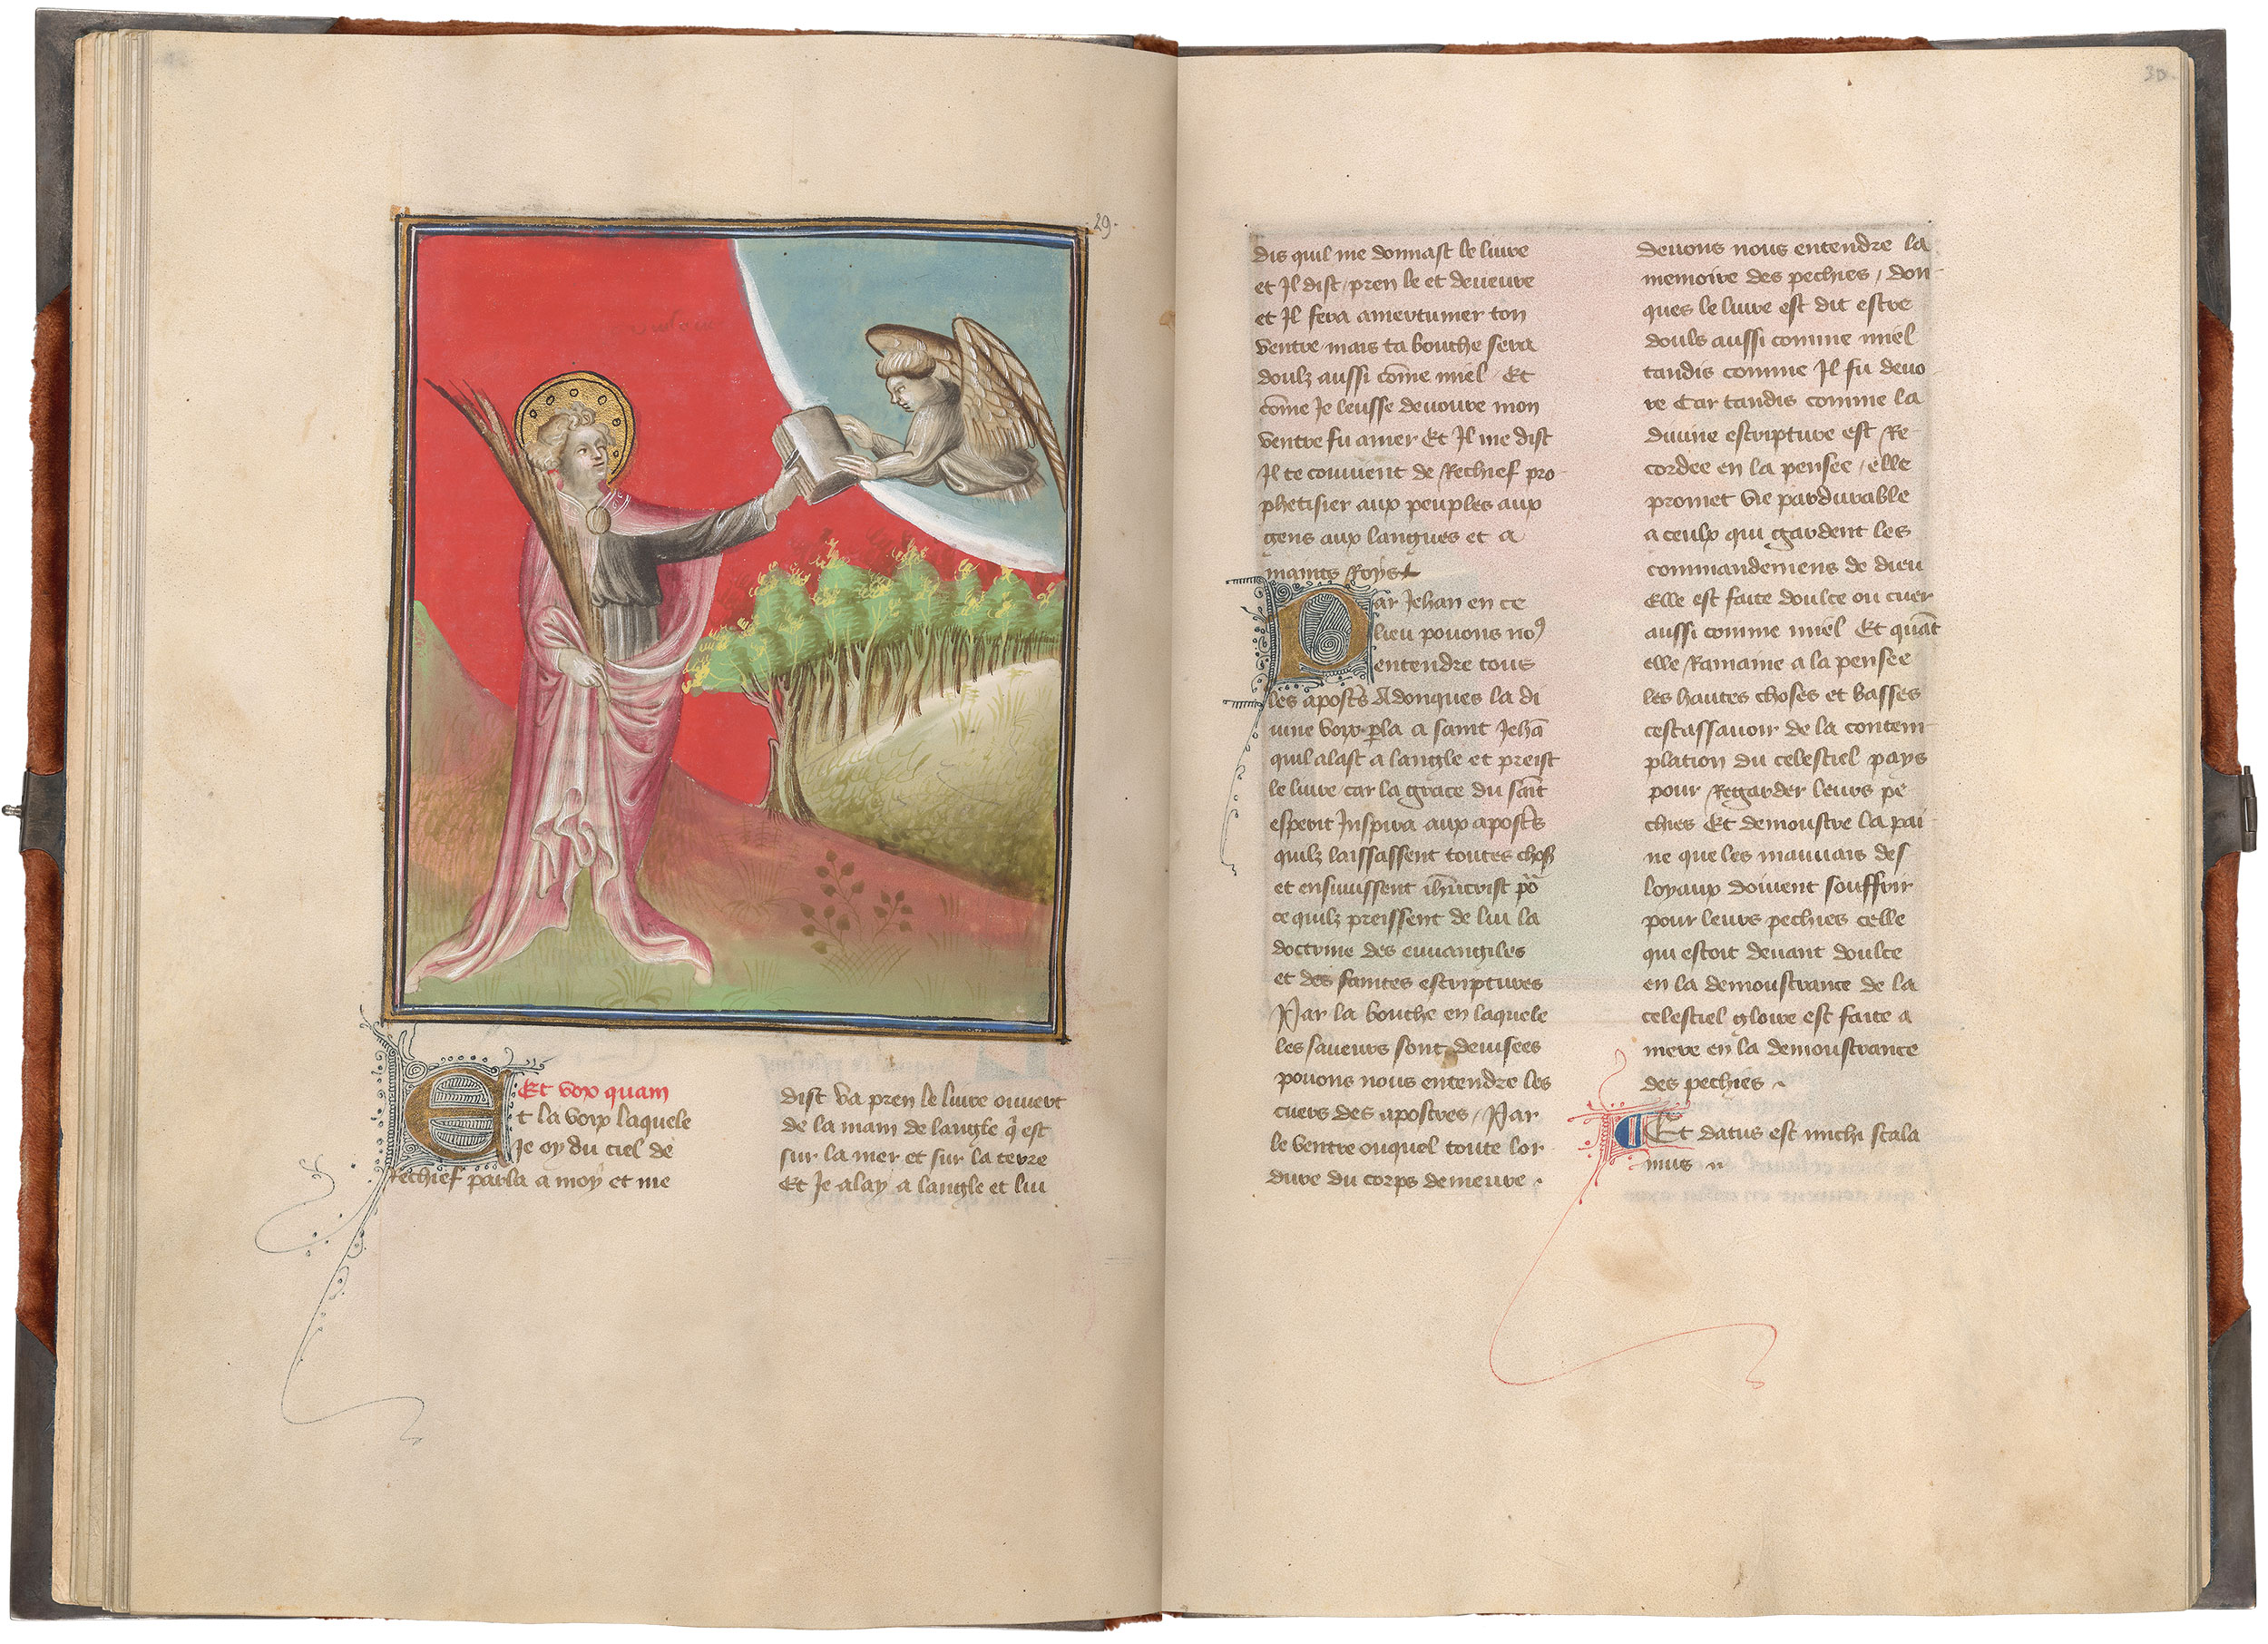 29.
Et vox quam
Et la voix laquele
Je oy du ciel de
Rechief parla a moy et me
dist va pren le livre ouvert
de la main de langle q̇ est
sur la mer et sur la terre
Et Je alay a langle et lui
30.
dis quil me donnast le livre
et Il dist / pren le et deveure
et Il fera amertumer ton
ventre mais ta bouche sera
doulz aussi cōme miel Et
cōme Je leusse devoure mon
ventre fu amer Et Il me dist
Il te convient de Rechief pro
phetisier aux peuples aux
gens aux langues et a
maints Roys
Par Jehan en ce
lieu povons noꝰ
entendre tous
les apostꝭ Adonques la di
vine voix ꝑla a saint Jehā
quil alast a langle et preist
le livre car la grace du sāīt
esperit Inspira aux apostꝭ
quilz laissassent toutes choß
et ensuivissent ih̄ucrist po᷑
ce quilz preissent de lui la
doctrine des euvangiles
et des saintes escriptures
Par la bouche en laquele
les saveurs sont devisees
povons nous entendre les
cuers des apostres / Par
le ventre ouquel toute lor
dure du corps demeure .
devons nous entendre la
memoire des pechies / don
ques le livre est dit estre
douls aussi comme miel
tandis comme Il fu devo
re Car tandis comme la
divine escripture est Re
cordee en la pensee / elle
promet vie pardurable
a ceulx qui gardent les
commandemens de dieu
Elle est faite doulce ou cuer
aussi comme miel Et quāt
elle Ramaine a la pensee
les hautes choses et basses
cestassavoir de la contem
plation du celestiel pays
pour Regarder leurs pe
chies Et demoustre la pai
ne que les mauvais des
loyaux doivent souffrir
pour leurs pechies celle
qui estoit devant doulce
en la demoustrance de la
celestiel gloire est faite a
mere en la demoustrance
des pechies
Et datus est michi scala
mus